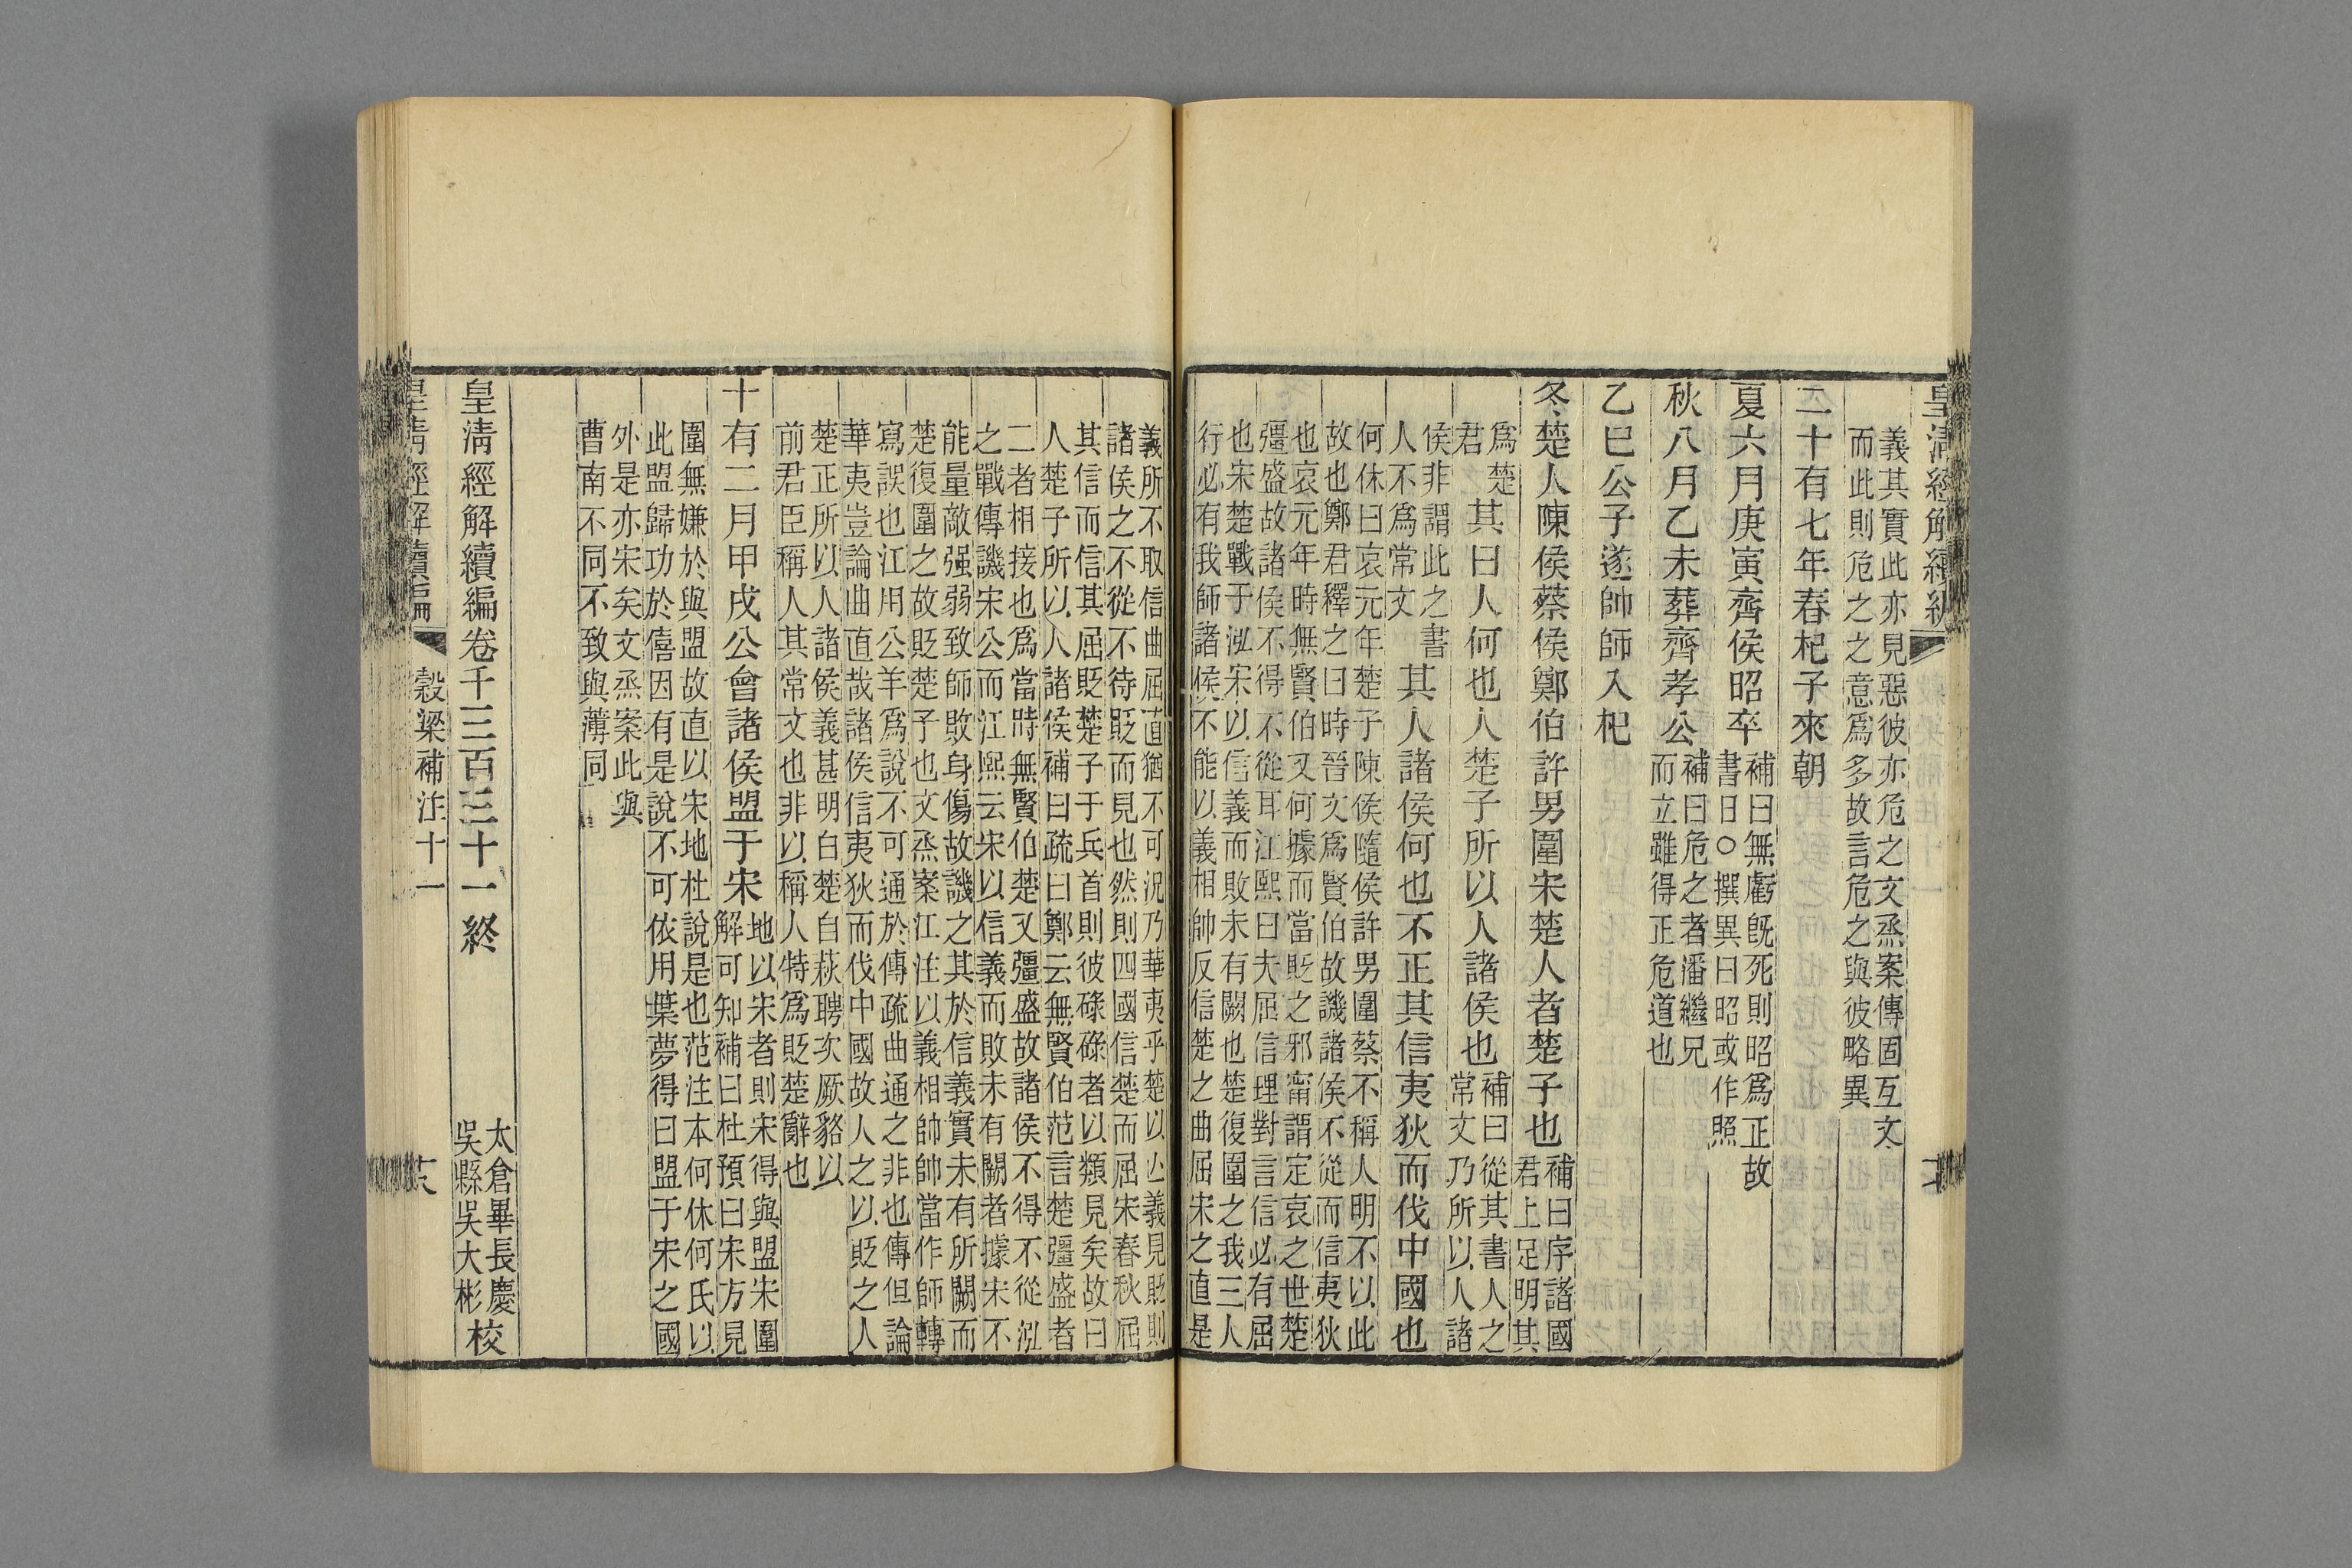 皇清經解續編
義其實此亦見惡彼亦危之文烝案傳固互文
而此則危之之意爲多故言危之與彼略異
二十有七年春杞子來朝
夏六月庚寅齊侯昭卒
補曰無虧旣死則昭爲正故
書日○撰異曰昭或作照
秋八月乙未葬齊孝公
補曰危之者潘繼兄
而立雖得正危道也
乙巳公子遂帥師入杞
冬楚人陳侯蔡侯鄭伯許男圍宋楚人者楚子也
補曰序諸國
君上足明其
爲楚
君
其曰人何也人楚子所以人諸侯也
補曰從其書人之
常文乃所以人諸
侯非謂此之書
人不爲常文
其人諸侯何也不正其信夷狄而伐中國也
何休曰哀元年楚子陳侯隨侯許男圍蔡不稱人明不以此
故也鄭君釋之曰時晉文爲賢伯故譏諸侯不從而信夷狄
也哀元年時無賢伯又何據而當貶之邪甯謂定哀之世楚
彊盛故諸侯不得不從耳江熙曰夫屈信理對言信必有屈
也宋楚戰于泓宋以信義而敗未有闕也楚復圍之我三人
行必有我師諸侯不能以義相帥反信楚之曲屈宋之直是
義所不取信曲屈直猶不可況乃華夷乎楚以亾義見貶則
諸侯之不從不待貶而見也然則四國信楚而屈宋春秋屈
其信而信其屈貶楚子于兵首則彼碌碌者以類見矣故曰
人楚子所以人諸侯補曰疏曰鄭云無賢伯范言楚彊盛者
二者相接也爲當時無賢伯楚又彊盛故諸侯不得不從泓
之戰傳譏宋公而江熙云宋以信義而敗未有闕者據宋不
能量敵强弱致師敗身傷故譏之其於信義實未有所闕而
楚復圍之故貶楚子也文烝案江注以義相帥帥當作師轉
寫誤也江用公羊爲說不可通於傳疏曲通之非也傳但論
華夷豈論曲直哉諸侯信夷狄而伐中國故人之以貶之人
楚正所以人諸侯義甚明白楚自萩聘次厥貉以
前君臣稱人其常文也非以稱人特爲貶楚辭也
十有二月甲戌公會諸侯盟于宋
地以宋者則宋得與盟宋圍
解可知補曰杜預曰宋方見
圍無嫌於與盟故直以宋地杜說是也范注本何休何氏以
此盟歸功於僖因有是說不可依用葉夢得曰盟于宋之國
外是亦宋矣文烝案此與
曹南不同不致與薄同
皇清經解續編卷千三百三十一終
太倉畢長慶
吳縣吳大彬
校
皇清經解續編
穀梁補注十一